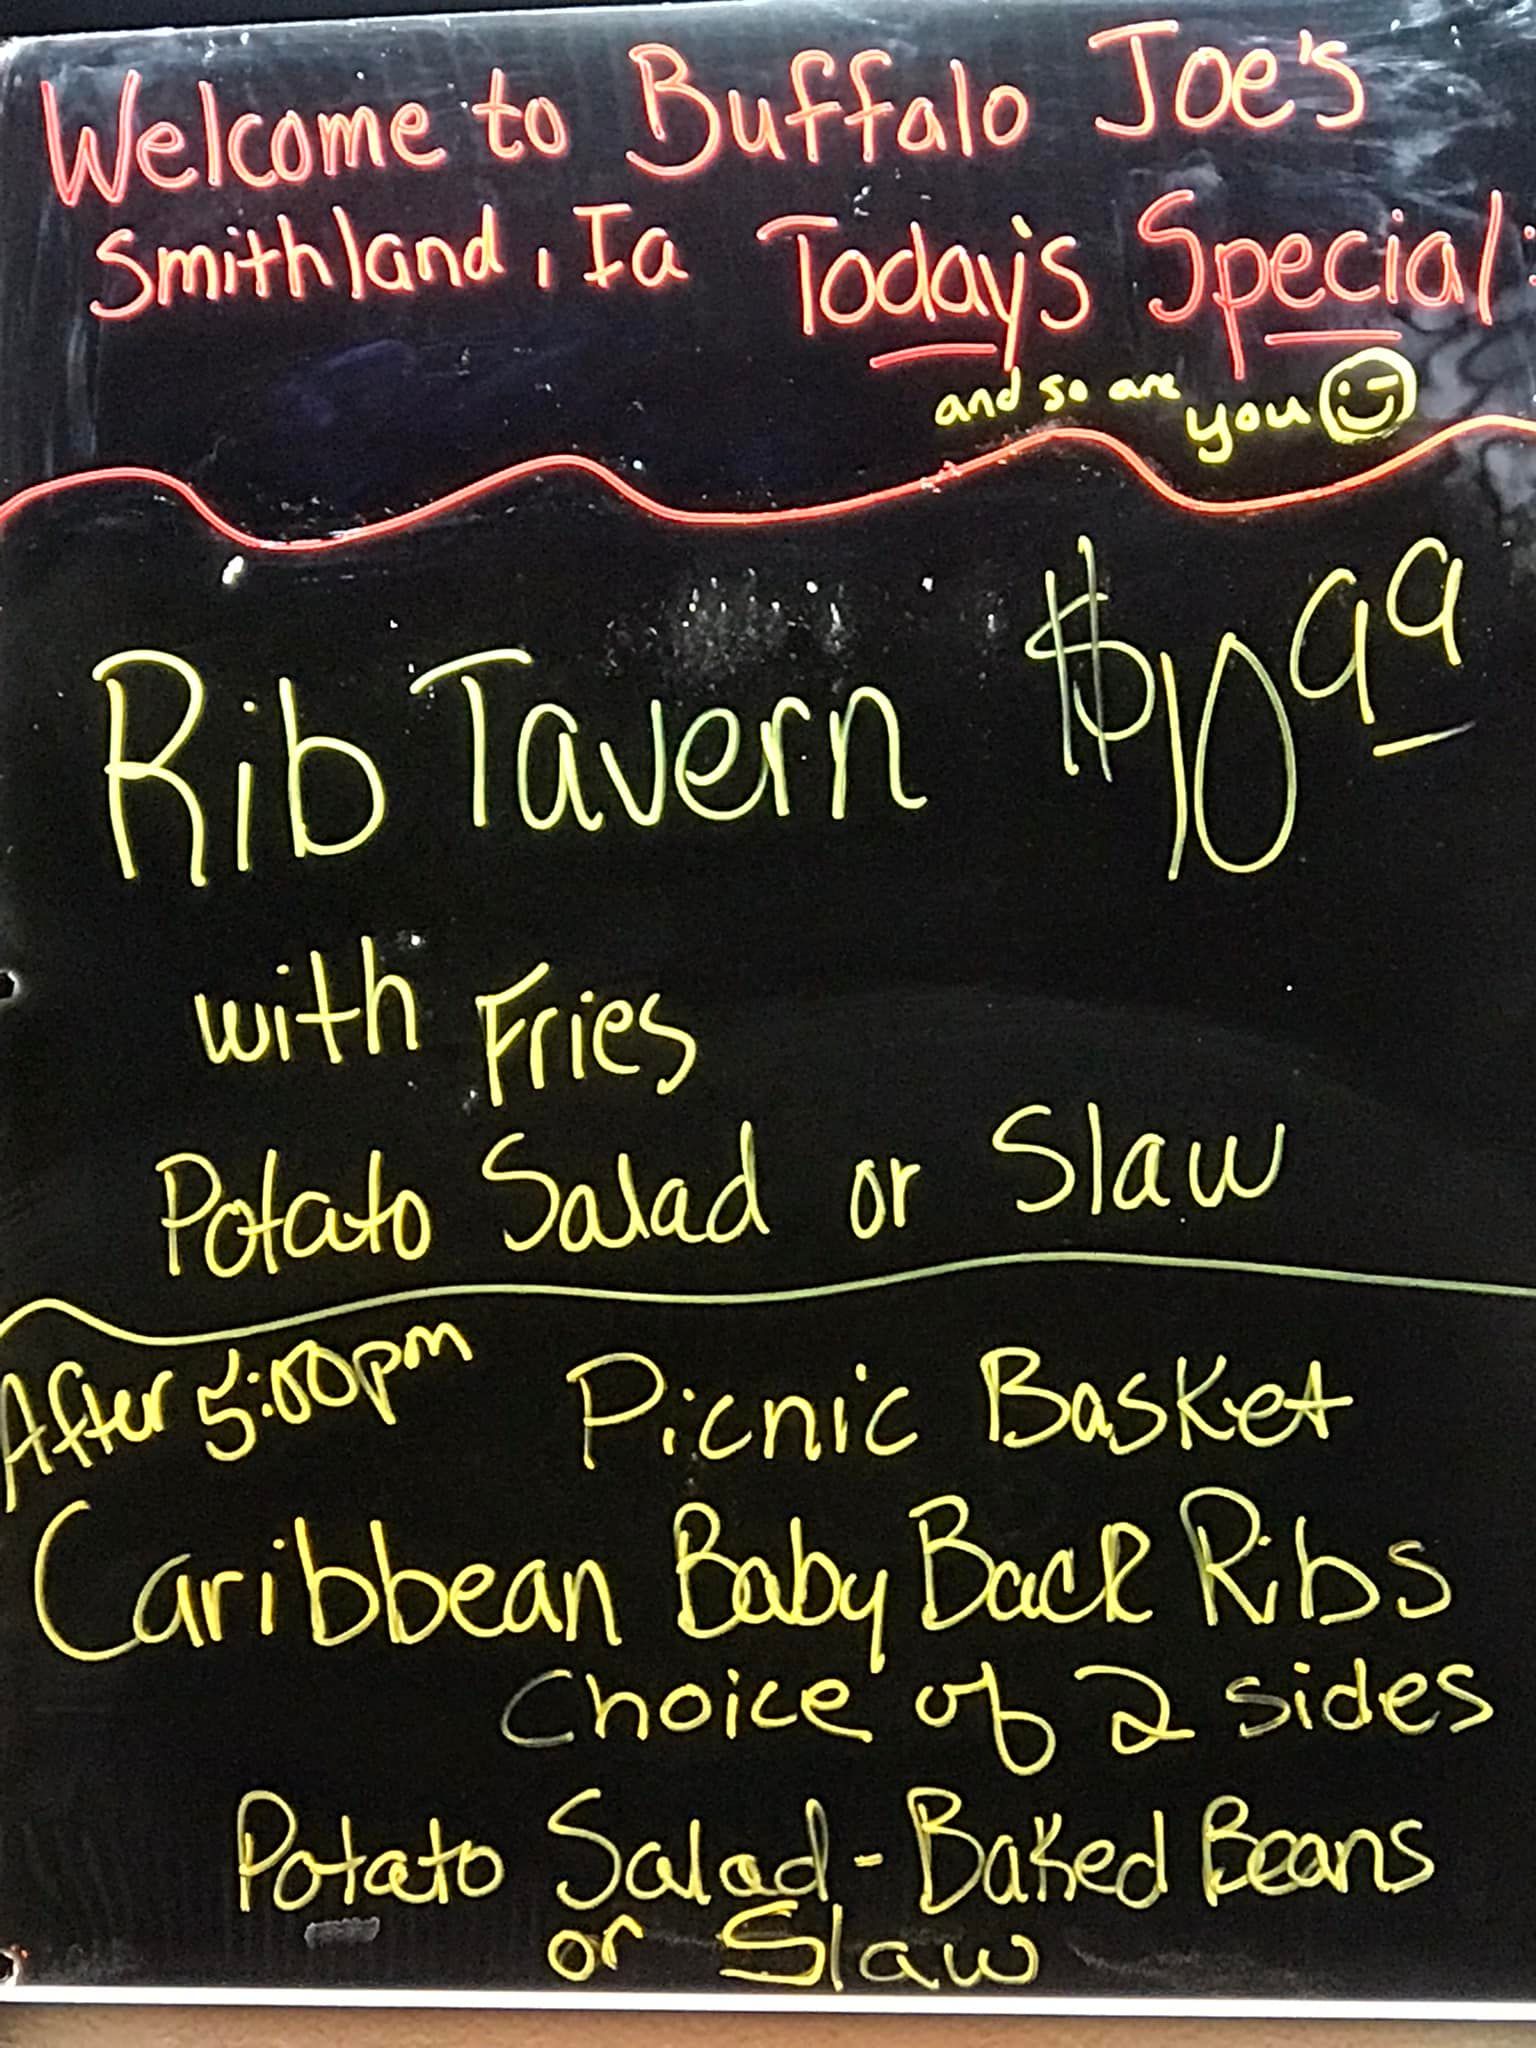 Welcome to Buffalo Joe's
Smithland, Ia Today's Special:
and so are you
Rib Tavern $10 99
with Fries
Potato Salad or Slaw
After 5:00pm Picnic Basket
Caribbean Baby Back Ribs
Choice of 2 sides
Potato Salad - Baked Beans
or Slaw